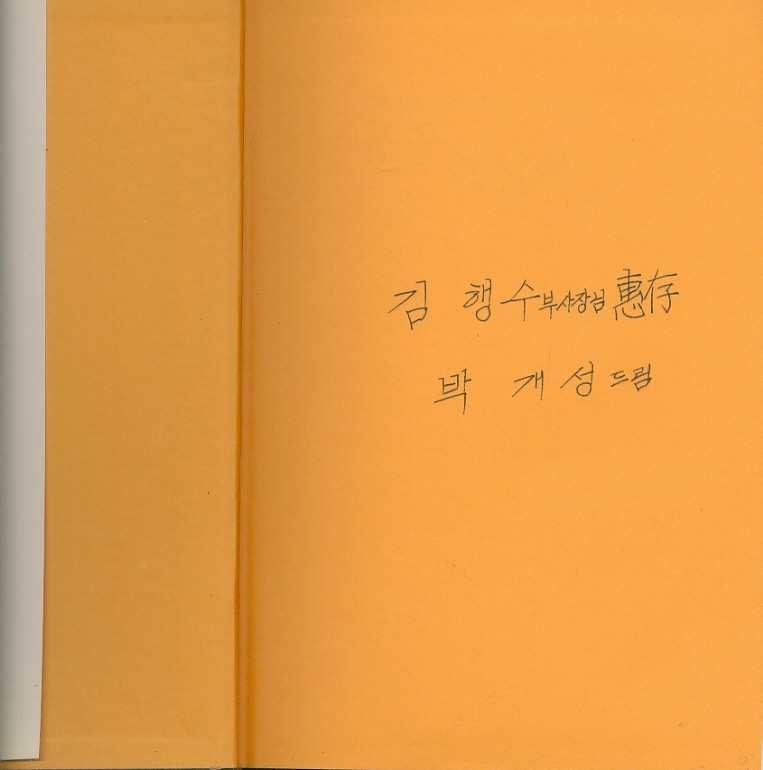 김 행 수 부사장님 惠存
박 개 성 드림